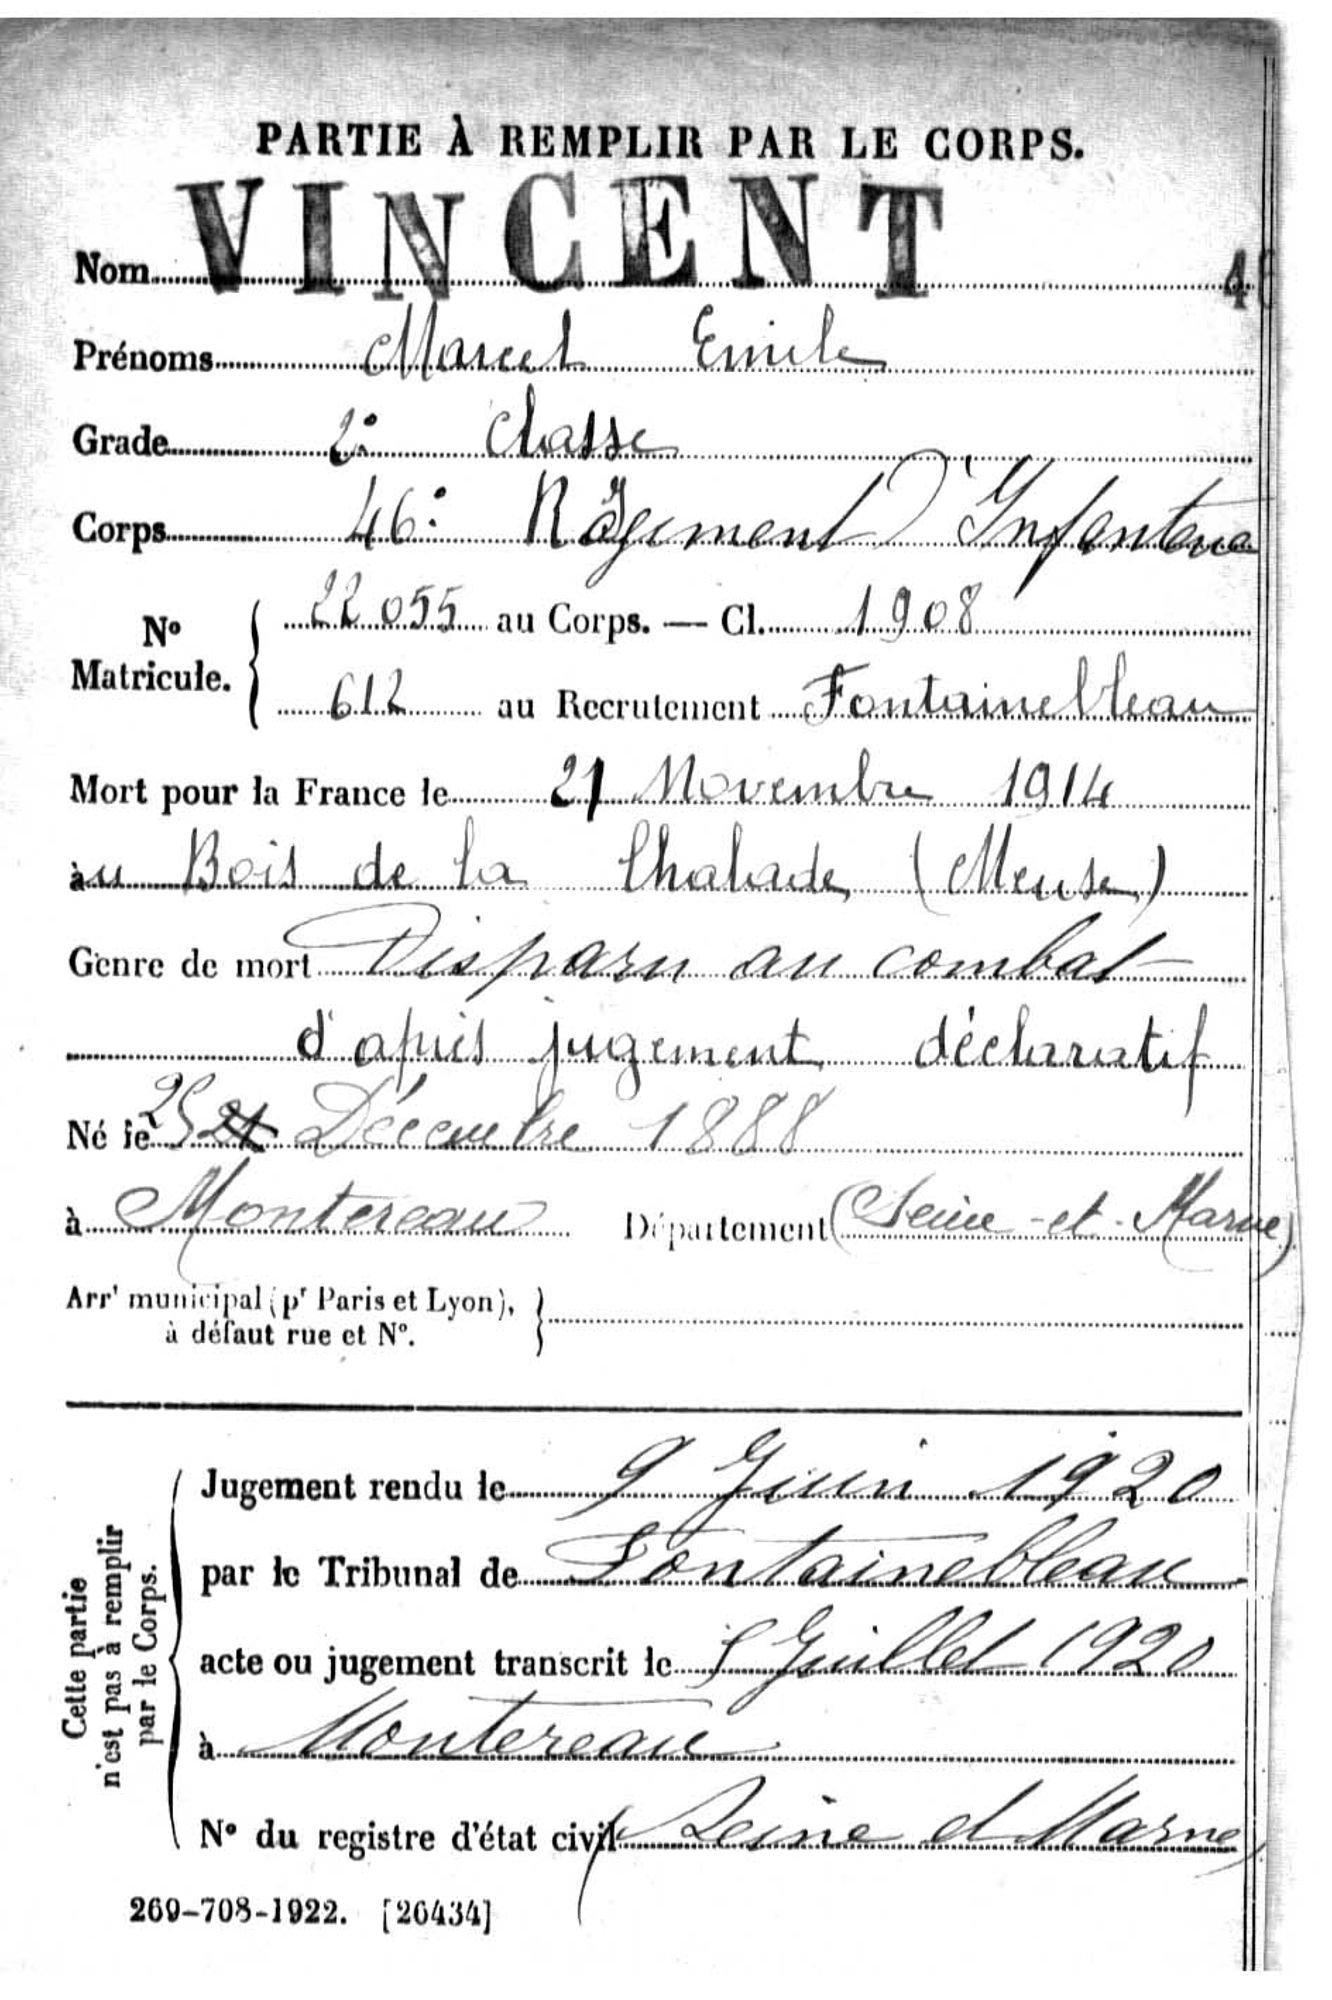 PARTIE À REMPLIR PAR LE CORPS.
Nom VINCENT 4
Prénoms Marcel Emile
Grade 2e Classe
Corps 46e Régiment d'Infanterie
No Matricule. 22055 au Corps. — Cl. 1908
612 au Recrutement Fontainebleau
Mort pour la France le 21 Novembre 1914
au Bois de la Chalade (Meuse)
Genre de mort Disparu au combat
d'après jugement déclaratif
Né le 25 21 Décembre 1888
à Montereau Département (Seine-et-Marne)
Arrt municipal (pr Paris et Lyon),
à défaut rue et No.
Cette partie n'est pas à remplir par le Corps.
Jugement rendu le 9 Juin 1920
par le Tribunal de Fontainebleau
acte ou jugement transcrit le 5 Juillet 1920
à Montereau
No du registre d'état civil (Seine et Marne)
269-708-1922. [26434]